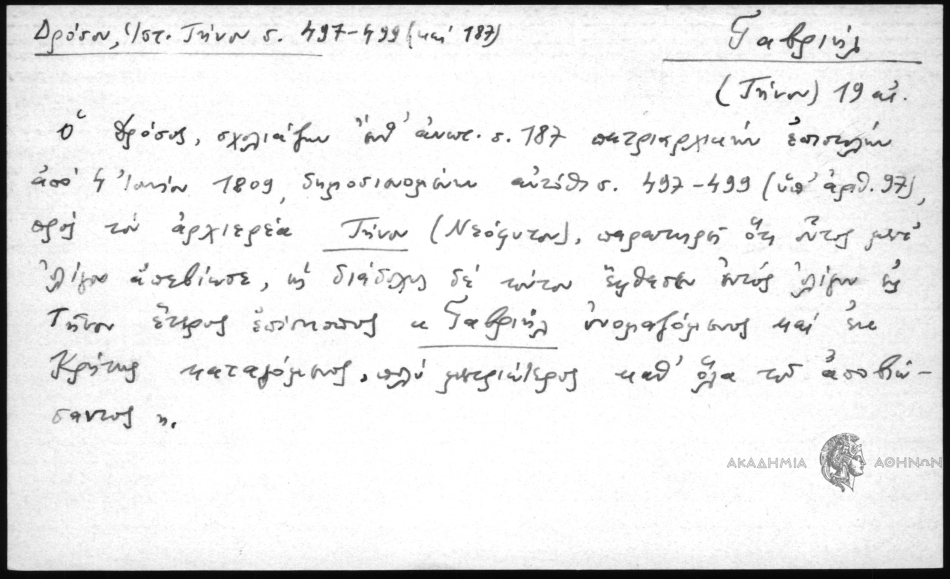 Δρόσου, Ἱστ. Τήνου σ. 497-499 (καί 187)
Γαβριήλ
(Τήνου) 19 αἰ.
Ὁ Δρόσος, σχολιάζων ἐνθ' ἀνωτ. σ. 187 πατριαρχικήν ἐπιστολήν
ἀπό 4 Ἰουνίου 1809, δημοσιευομένην αὐτόθι σ. 497-499 (ὑπ' ἀριθ. 97),
πρός τόν ἀρχιερέα Τήνου (Νεόφυτον), παρατηρεῖ ὅτι οὗτος μετ'
ὀλίγον ἀπεβίωσε, ὡς διάδοχος δέ τούτου ἔφθασεν ἐντός ὀλίγου εἰς
Τῆνον ἕτερος ἐπίσκοπος « Γαβριήλ ὀνομαζόμενος καί ἐκ
Κρήτης καταγόμενος, πολύ μετριώτερος καθ' ὅλα τοῦ ἀποβιώ-
σαντος ».
ΑΚΑΔΗΜΙΑ ΑΘΗΝΩΝ